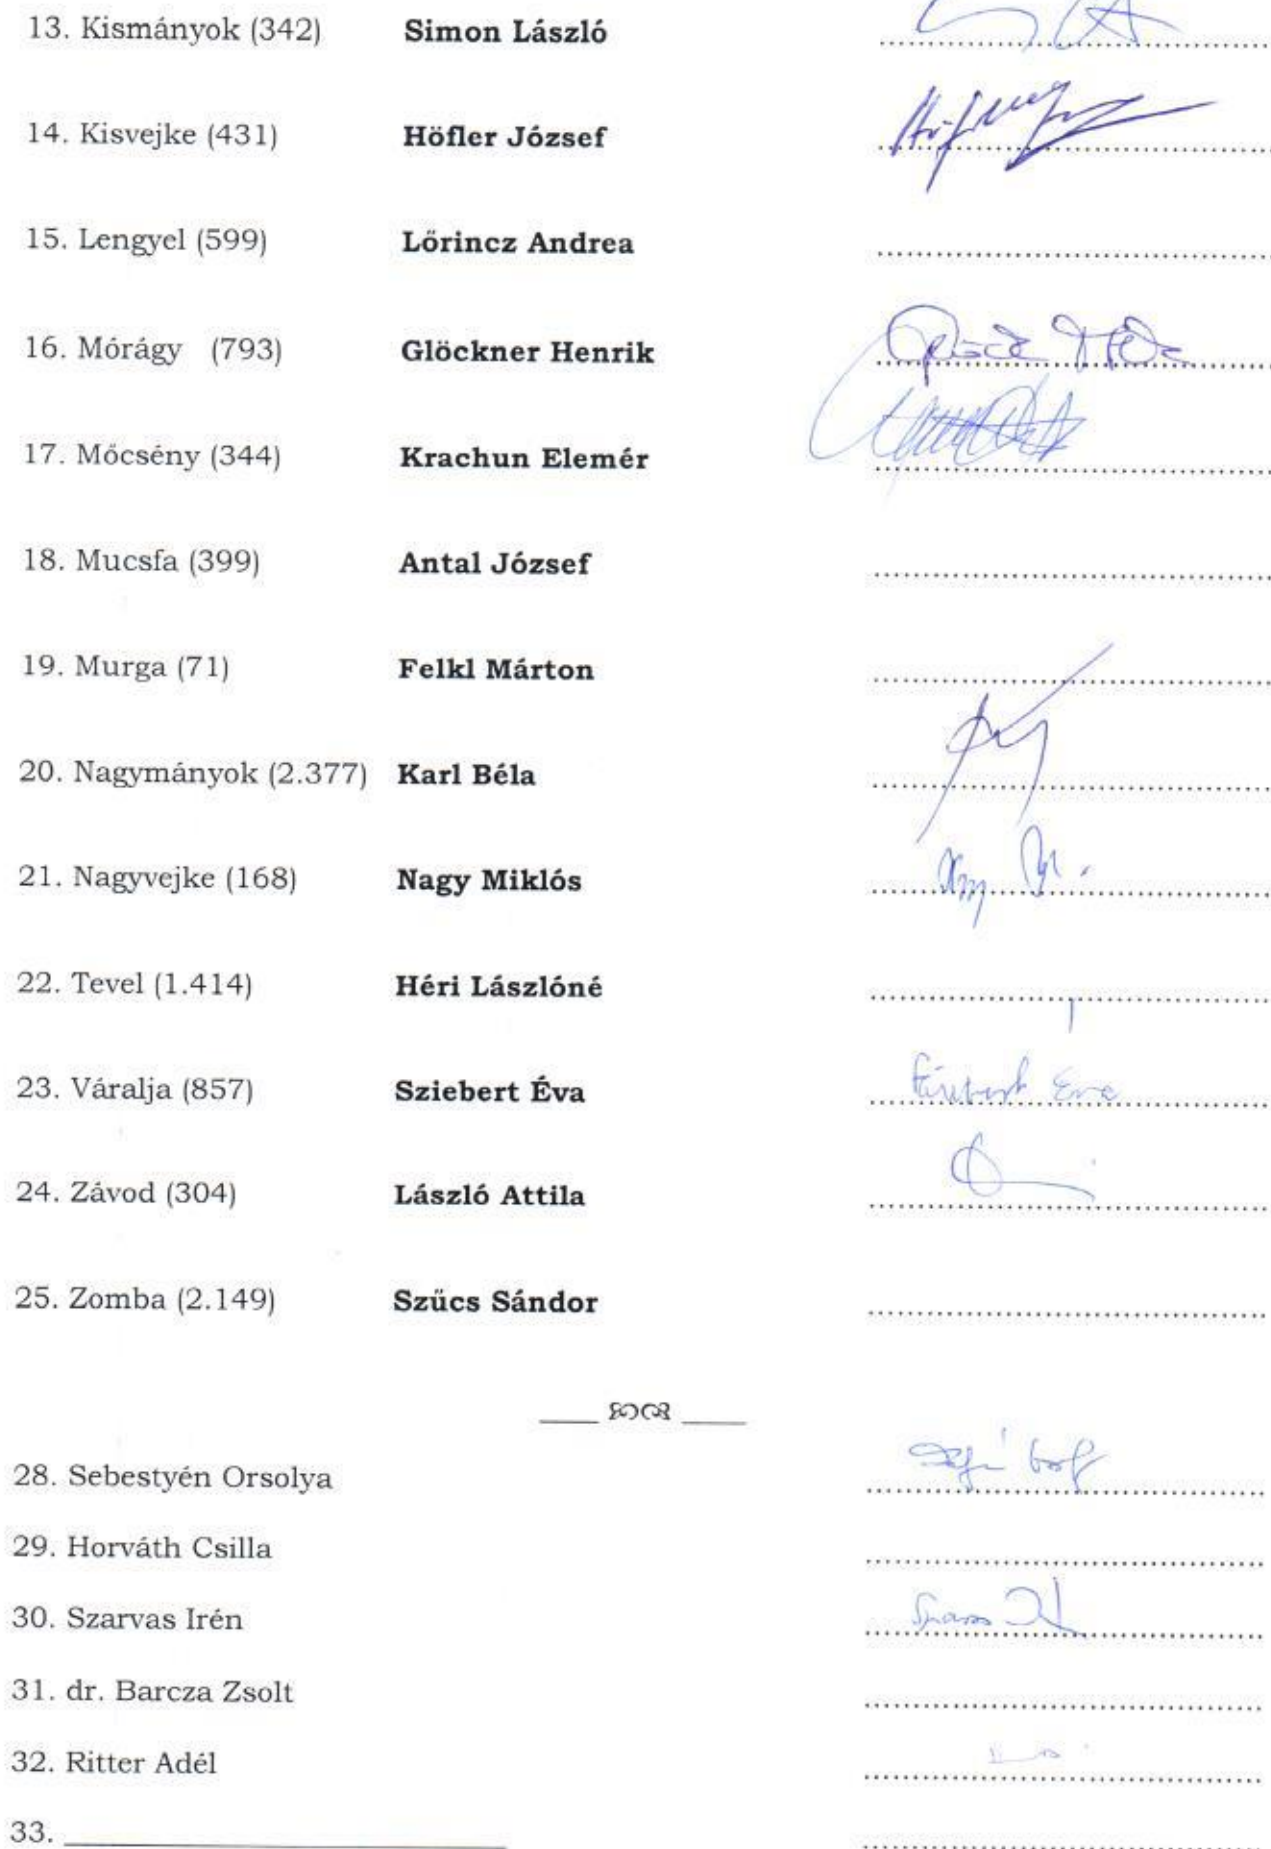 13. Kismányok (342) Simon László
14. Kisvejke (431) Höfler József
15. Lengyel (599) Lőrincz Andrea
16. Mórágy (793) Glöckner Henrik
17. Mőcsény (344) Krachun Elemér
18. Mucsfa (399) Antal József
19. Murga (71) Felkl Márton
20. Nagymányok (2.377) Karl Béla
21. Nagyvejke (168) Nagy Miklós
22. Tevel (1.414) Héri Lászlóné
23. Váralja (857) Sziebert Éva
24. Závod (304) László Attila
25. Zomba (2.149) Szűcs Sándor
28. Sebestyén Orsolya
29. Horváth Csilla
30. Szarvas Irén
31. dr. Barcza Zsolt
32. Ritter Adél
33.